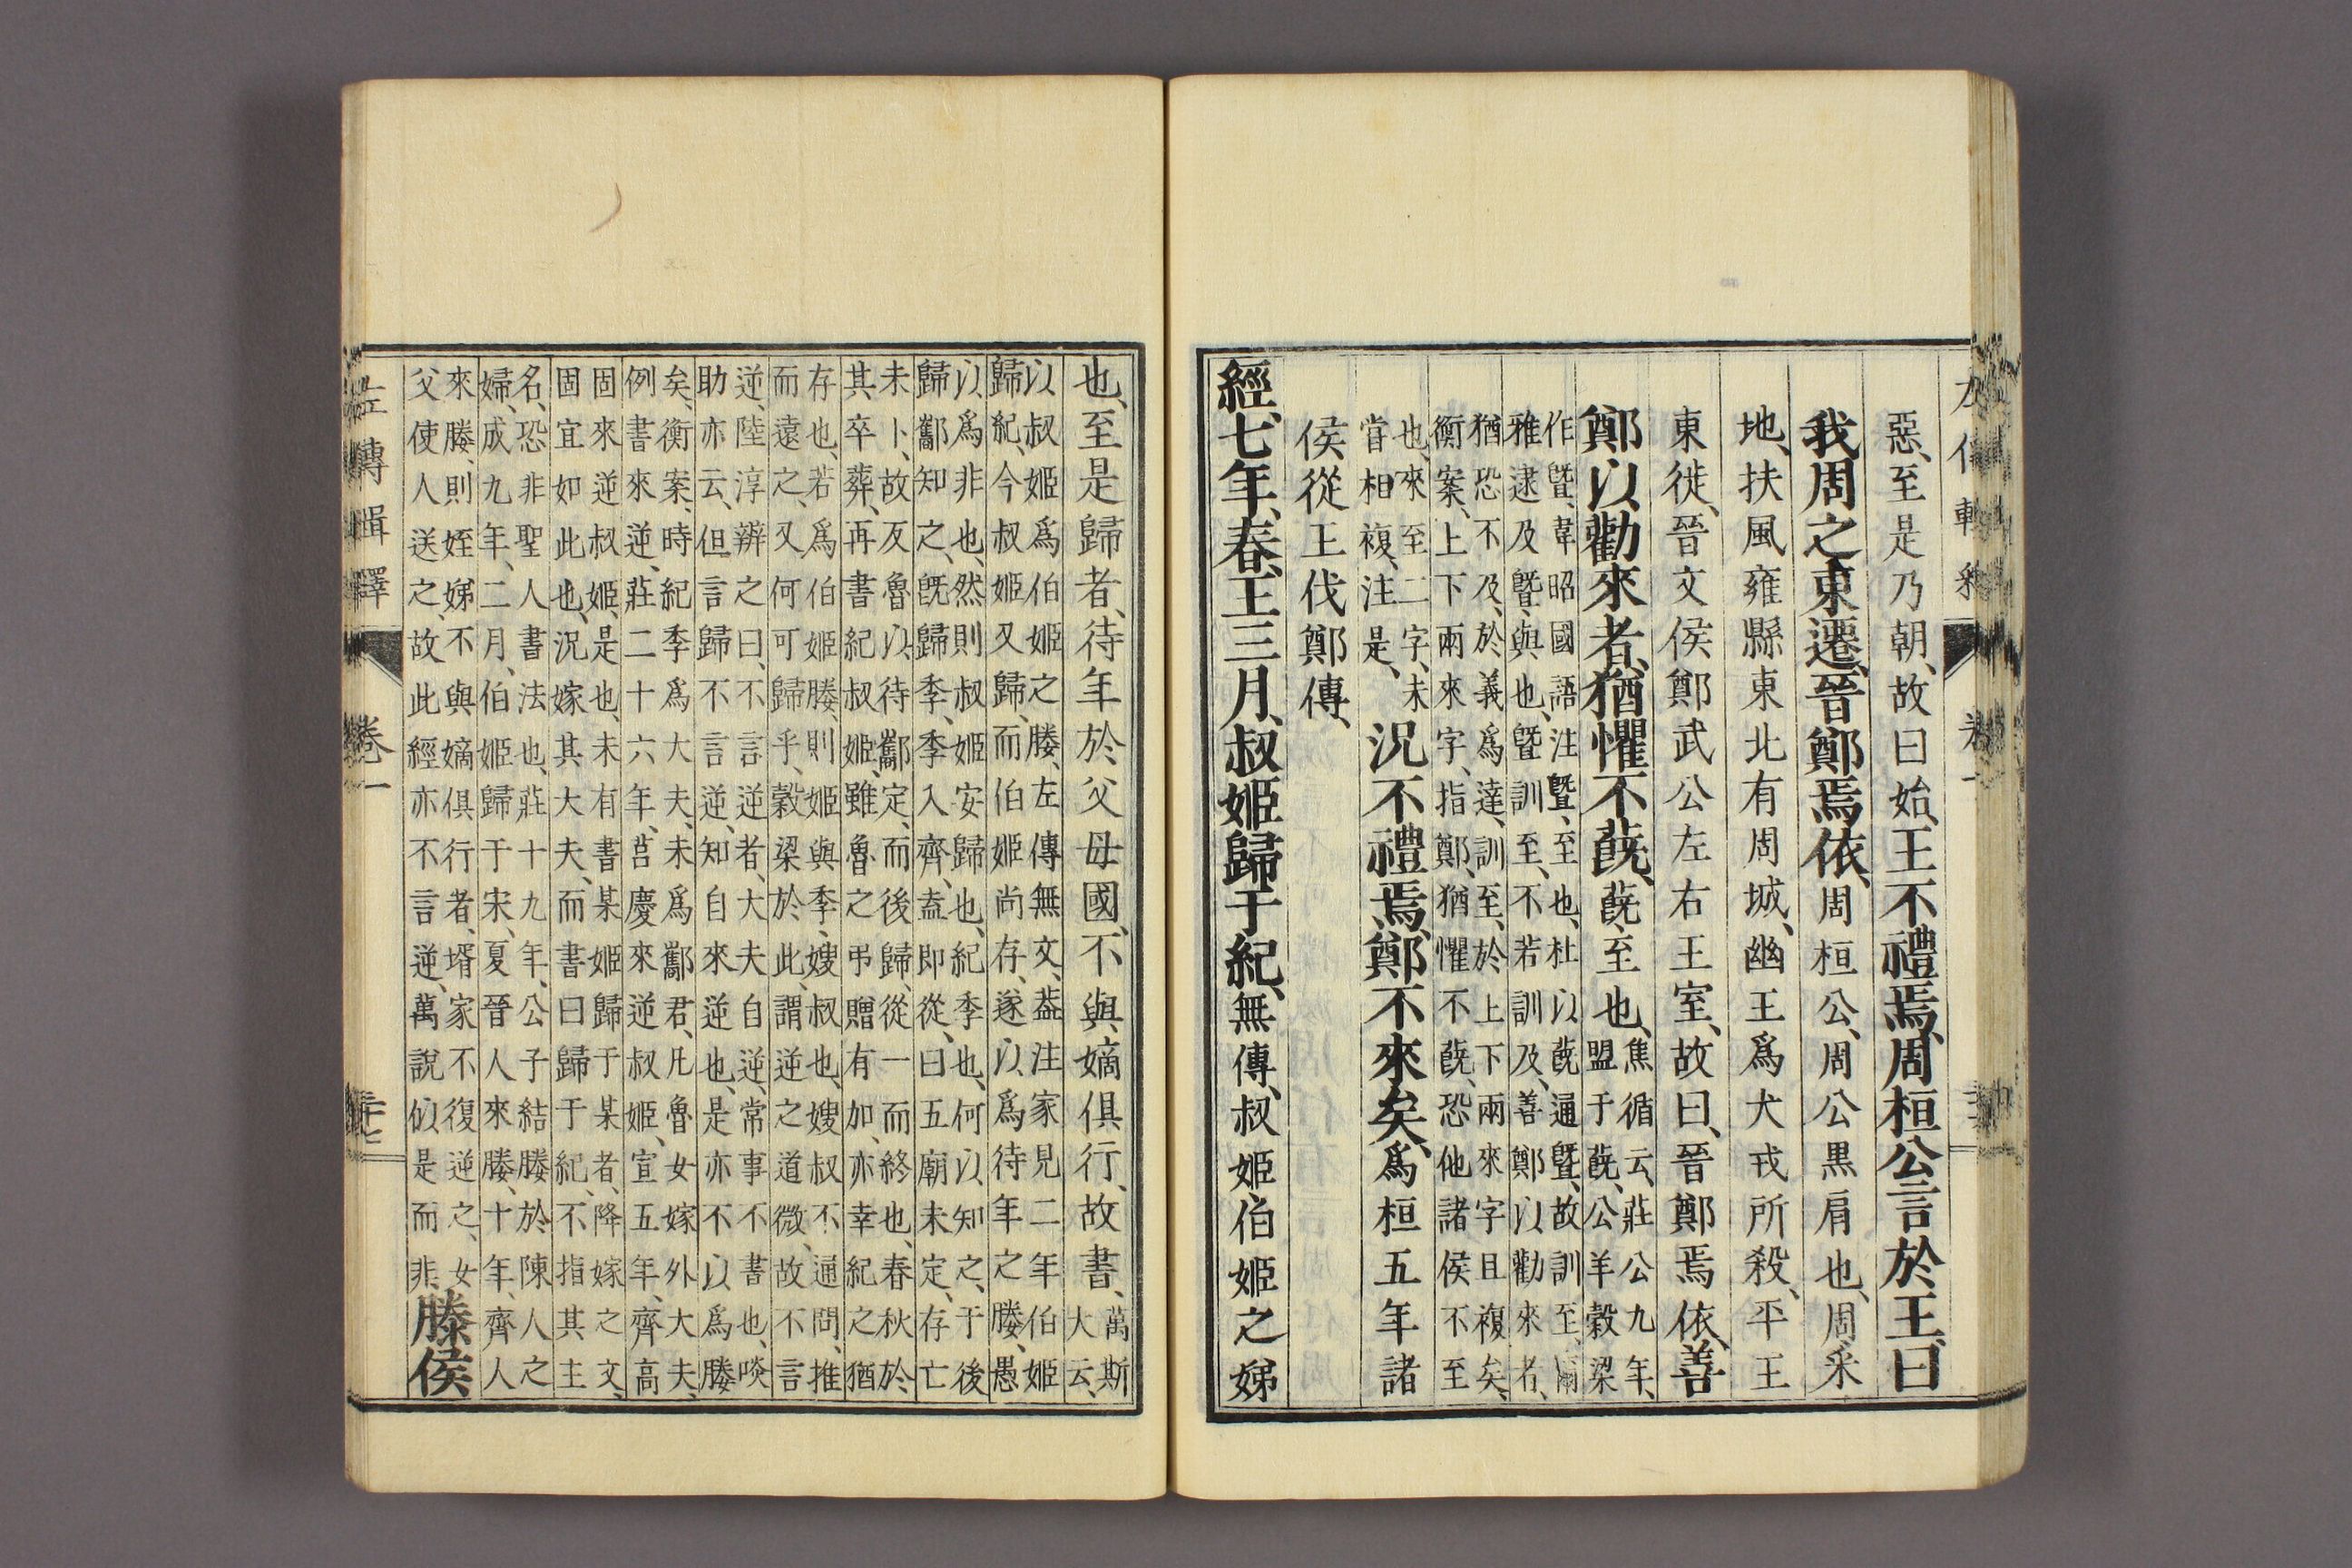 惡、至是乃朝、故曰始、王不禮焉、周桓公言於王、曰
我周之東遷、晉鄭焉依、周桓公、周公黑肩也、周采
地、扶風雍縣東北有周城、幽王爲犬戎所殺、平王
東徙、晉文侯鄭武公左右王室、故曰、晉鄭焉依、善
鄭以勸來者、猶懼不蔇、蔇、至也、焦循云、莊公九年、
盟于蔇、公羊穀梁
作曁、韋昭國語注曁、至也、杜以蔇通曁、故訓至、爾
雅逮及曁、與也、曁訓至、不若訓及、善鄭以勸來者、
猶恐不及、於義爲達、訓至、於上下兩來字且複矣、
衡案、上下兩來字、指鄭、猶懼不蔇、恐他諸侯不至
也、來至二字、未
甞相複、注是、況不禮焉、鄭不來矣、爲桓五年諸
侯從王伐鄭傳、
經、七年、春、王三月、叔姬歸于紀、無傳、叔姬、伯姬之娣
也、至是歸者、待年於父母國、不與嫡俱行、故書、萬斯
大云、
以叔姬爲伯姬之媵、左傳無文、葢注家見二年伯姬
歸紀、今叔姬又歸、而伯姬尚存、遂以爲待年之媵、愚
以爲非也、然則叔姬安歸也、紀季也、何以知之、于後
歸酅知之、旣歸季、季入齊、葢即從、曰五廟未定、存亡
未卜、故反魯以待酅定、而後歸、從一而終也、春秋於
其卒葬、再書紀叔姬、雖魯之弔贈有加、亦幸紀之猶
存也、若爲伯姬媵、則姬與季、嫂叔也、嫂叔不通問、推
而遠之、又何可歸乎、穀梁於此、謂逆之道微、故不言
逆、陸淳辨之曰、不言逆者、大夫自逆、常事不書也、啖
助亦云、但言歸不言逆、知自來逆也、是亦不以爲媵
矣、衡案、時紀季爲大夫、未爲酅君、凡魯女嫁外大夫、
例書來逆、莊二十六年、莒慶來逆叔姬、宣五年、齊高
固來逆叔姬、是也、未有書某姬歸于某者、降嫁之文、
固宜如此也、況嫁其大夫、而書曰歸于紀、不指其主
名、恐非聖人書法也、莊十九年、公子結媵於陳人之
婦、成九年、二月、伯姬歸于宋、夏晉人來媵、十年、齊人
來媵、則姪娣不與嫡俱行者、壻家不復逆之、女
父使人送之、故此經亦不言逆、萬說似是而非、滕侯
左傳輯釋 卷一